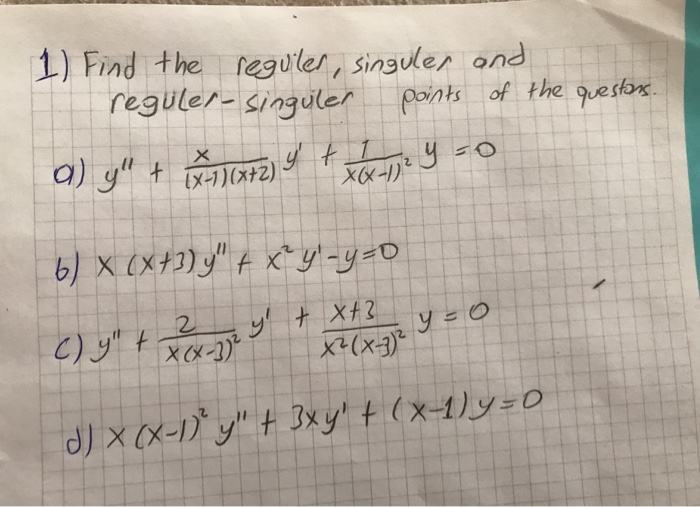 1) Find the reguler, singuler and
reguler-singuler points of the questons.
a) y'' + x/((x-1)(x+2)) y' + 1/(x(x-1)²) y = 0
b) x (x+3) y'' + x² y' - y = 0
c) y'' + 2/(x(x-3)²) y' + (x+3)/(x²(x-3)²) y = 0
d) x (x-1)² y'' + 3xy' + (x-1) y = 0